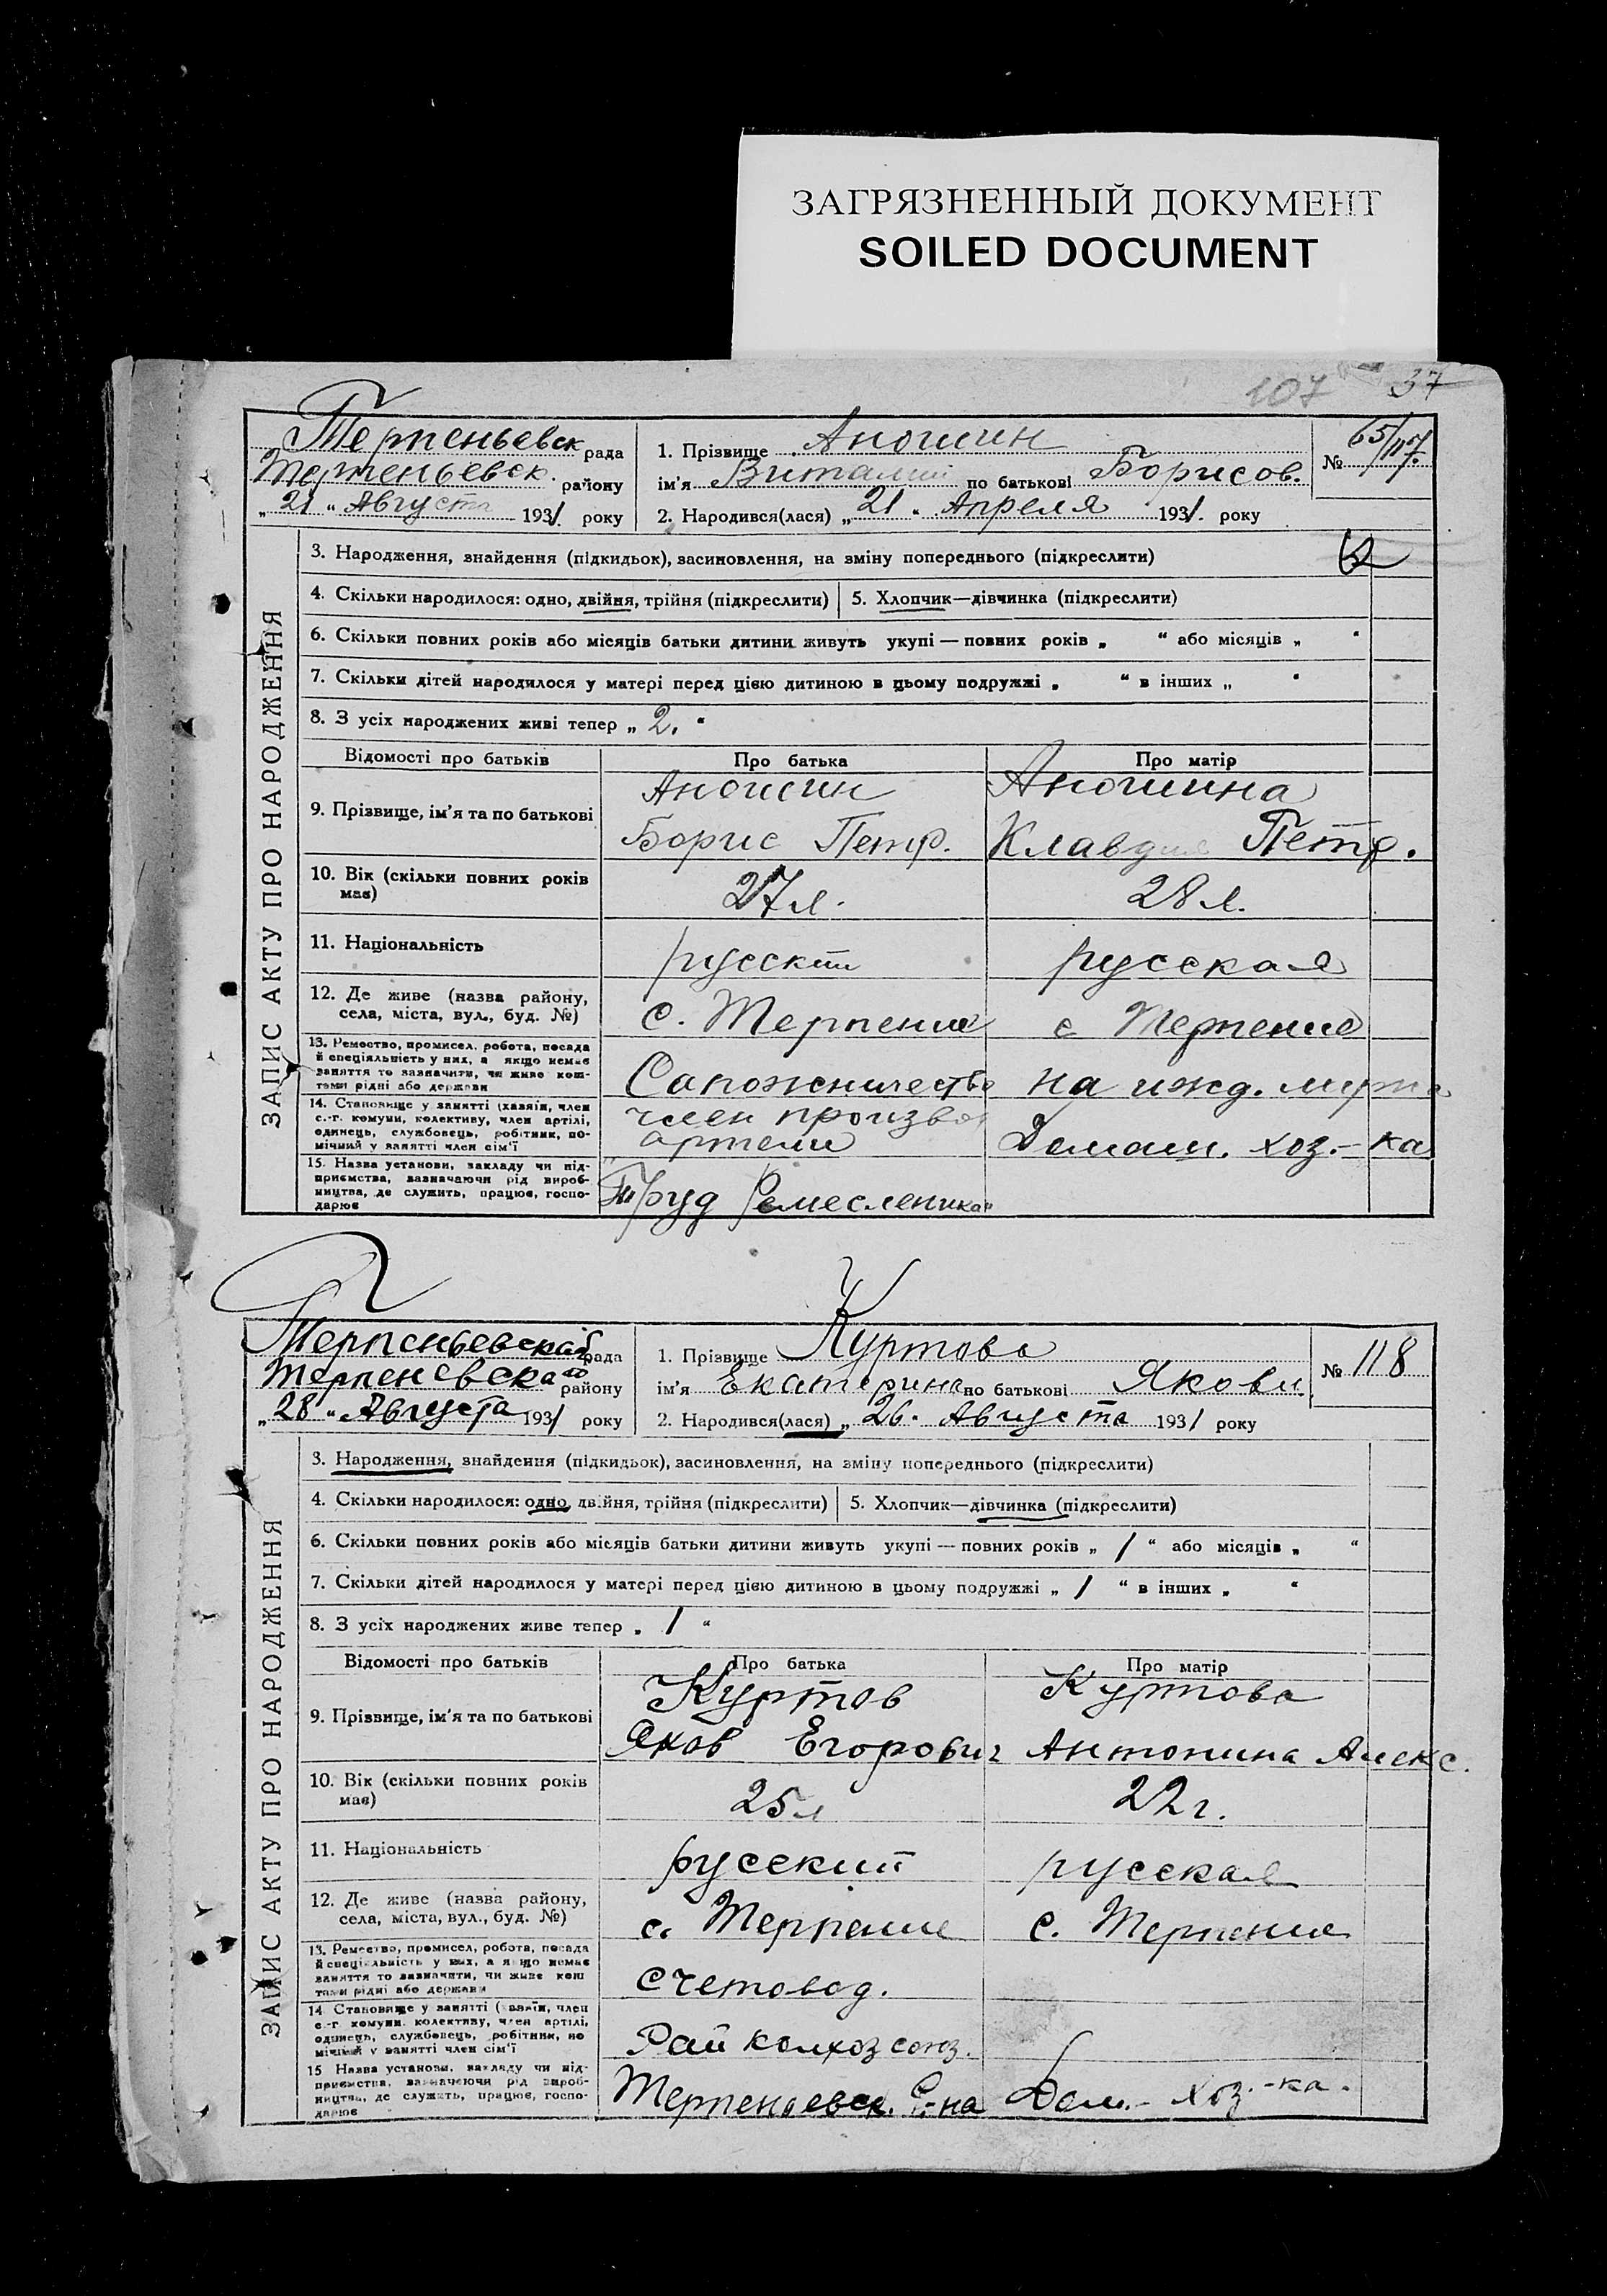 ЗАГРЯЗНЕННЫЙ ДОКУМЕНТ
SOILED DOCUMENT
107 37
Терпеньевск рада
Терпеньевск. району
„ 21 “ Августа 1931. року
1. Прізвище Аношин
ім'я Виталий по батькові Борисов.
2. Народився(лася) „ 21 “ Апреля 1931. року
№ 65/117.
ЗАПИС АКТУ ПРО НАРОДЖЕННЯ
3. Народження, знайдення (підкидьок), засиновлення, на зміну попереднього (підкреслити)
4. Скільки народилося: одно, двійня, трійня (підкреслити) 5. Хлопчик—дівчинка (підкреслити)
6. Скільки повних років або місяців батьки дитини живуть укупі — повних років „ “ або місяців „ “
7. Скільки дітей народилося у матері перед цією дитиною в цьому подружжі „ “ в інших „ “
8. З усіх народжених живі тепер „ 2. “
Відомості про батьків Про батька Про матір
9. Прізвище, ім'я та по батькові
Аношин Аношина
Борис Петр. Клавдия Петр.
10. Вік (скільки повних років має) 27 л. 28 л.
11. Національність русский русская
12. Де живе (назва району, села, міста, вул., буд. №) с. Терпение с Терпение
13. Ремество, промисел, робота, посада й спеціяльність у них, а якщо немає заняття то зазначити, чи живе коштами рідні або держави
Сапожничество на ижд. мужа
14. Становище у занятті (хазяїн, член с.-г. комуни, колективу, член артілі, одинець, службовець, робітник, помічний у занятті член сім'ї
член производ
артели Домаш. хоз.-ка
15. Назва установи, закладу чи підприємства, зазначаючи рід виробництва, де служить, працює, господарює
Труд Ремесленика"
Терпеньевская рада
Терпеневскаго району
„ 28 “ Августа 1931 року
1. Прізвище Куртова
ім'я Екатерина по батькові Якови.
2. Народився(лася) „ 26. Августа 1931 року
№ 118
ЗАПИС АКТУ ПРО НАРОДЖЕННЯ
3. Народження, знайдення (підкидьок), засиновлення, на зміну попереднього (підкреслити)
4. Скільки народилося: одно, двійня, трійня (підкреслити) 5. Хлопчик—дівчинка (підкреслити)
6. Скільки повних років або місяців батьки дитини живуть укупі — повних років „ 1 “ або місяців „ “
7. Скільки дітей народилося у матері перед цією дитиною в цьому подружжі „ 1 “ в інших „ “
8. З усіх народжених живе тепер „ 1 “
Відомості про батьків Про батька Про матір
9. Прізвище, ім'я та по батькові
Куртов Куртова
Яков Егорович Антонина Алекс.
10. Вік (скільки повних років має) 25 л 22 г.
11. Національність русский русская
12. Де живе (назва району, села, міста, вул., буд. №) с. Терпение с. Терпение
13. Ремество, промисел, робота, посада й спеціяльність у них, а якщо немає заняття то зазначити, чи живе коштами рідні або держави
Счетовод.
14. Становище у занятті (хазяїн, член с.-г. комуни, колективу, член артілі, одинець, службовець, робітник, помічний у занятті член сім'ї
Рай колхоз союз.
15. Назва установи, закладу чи підприємства, зазначаючи рід виробництва, де служить, працює, господарює
Терпеньевск. Р-на Дом.- хоз.-ка.